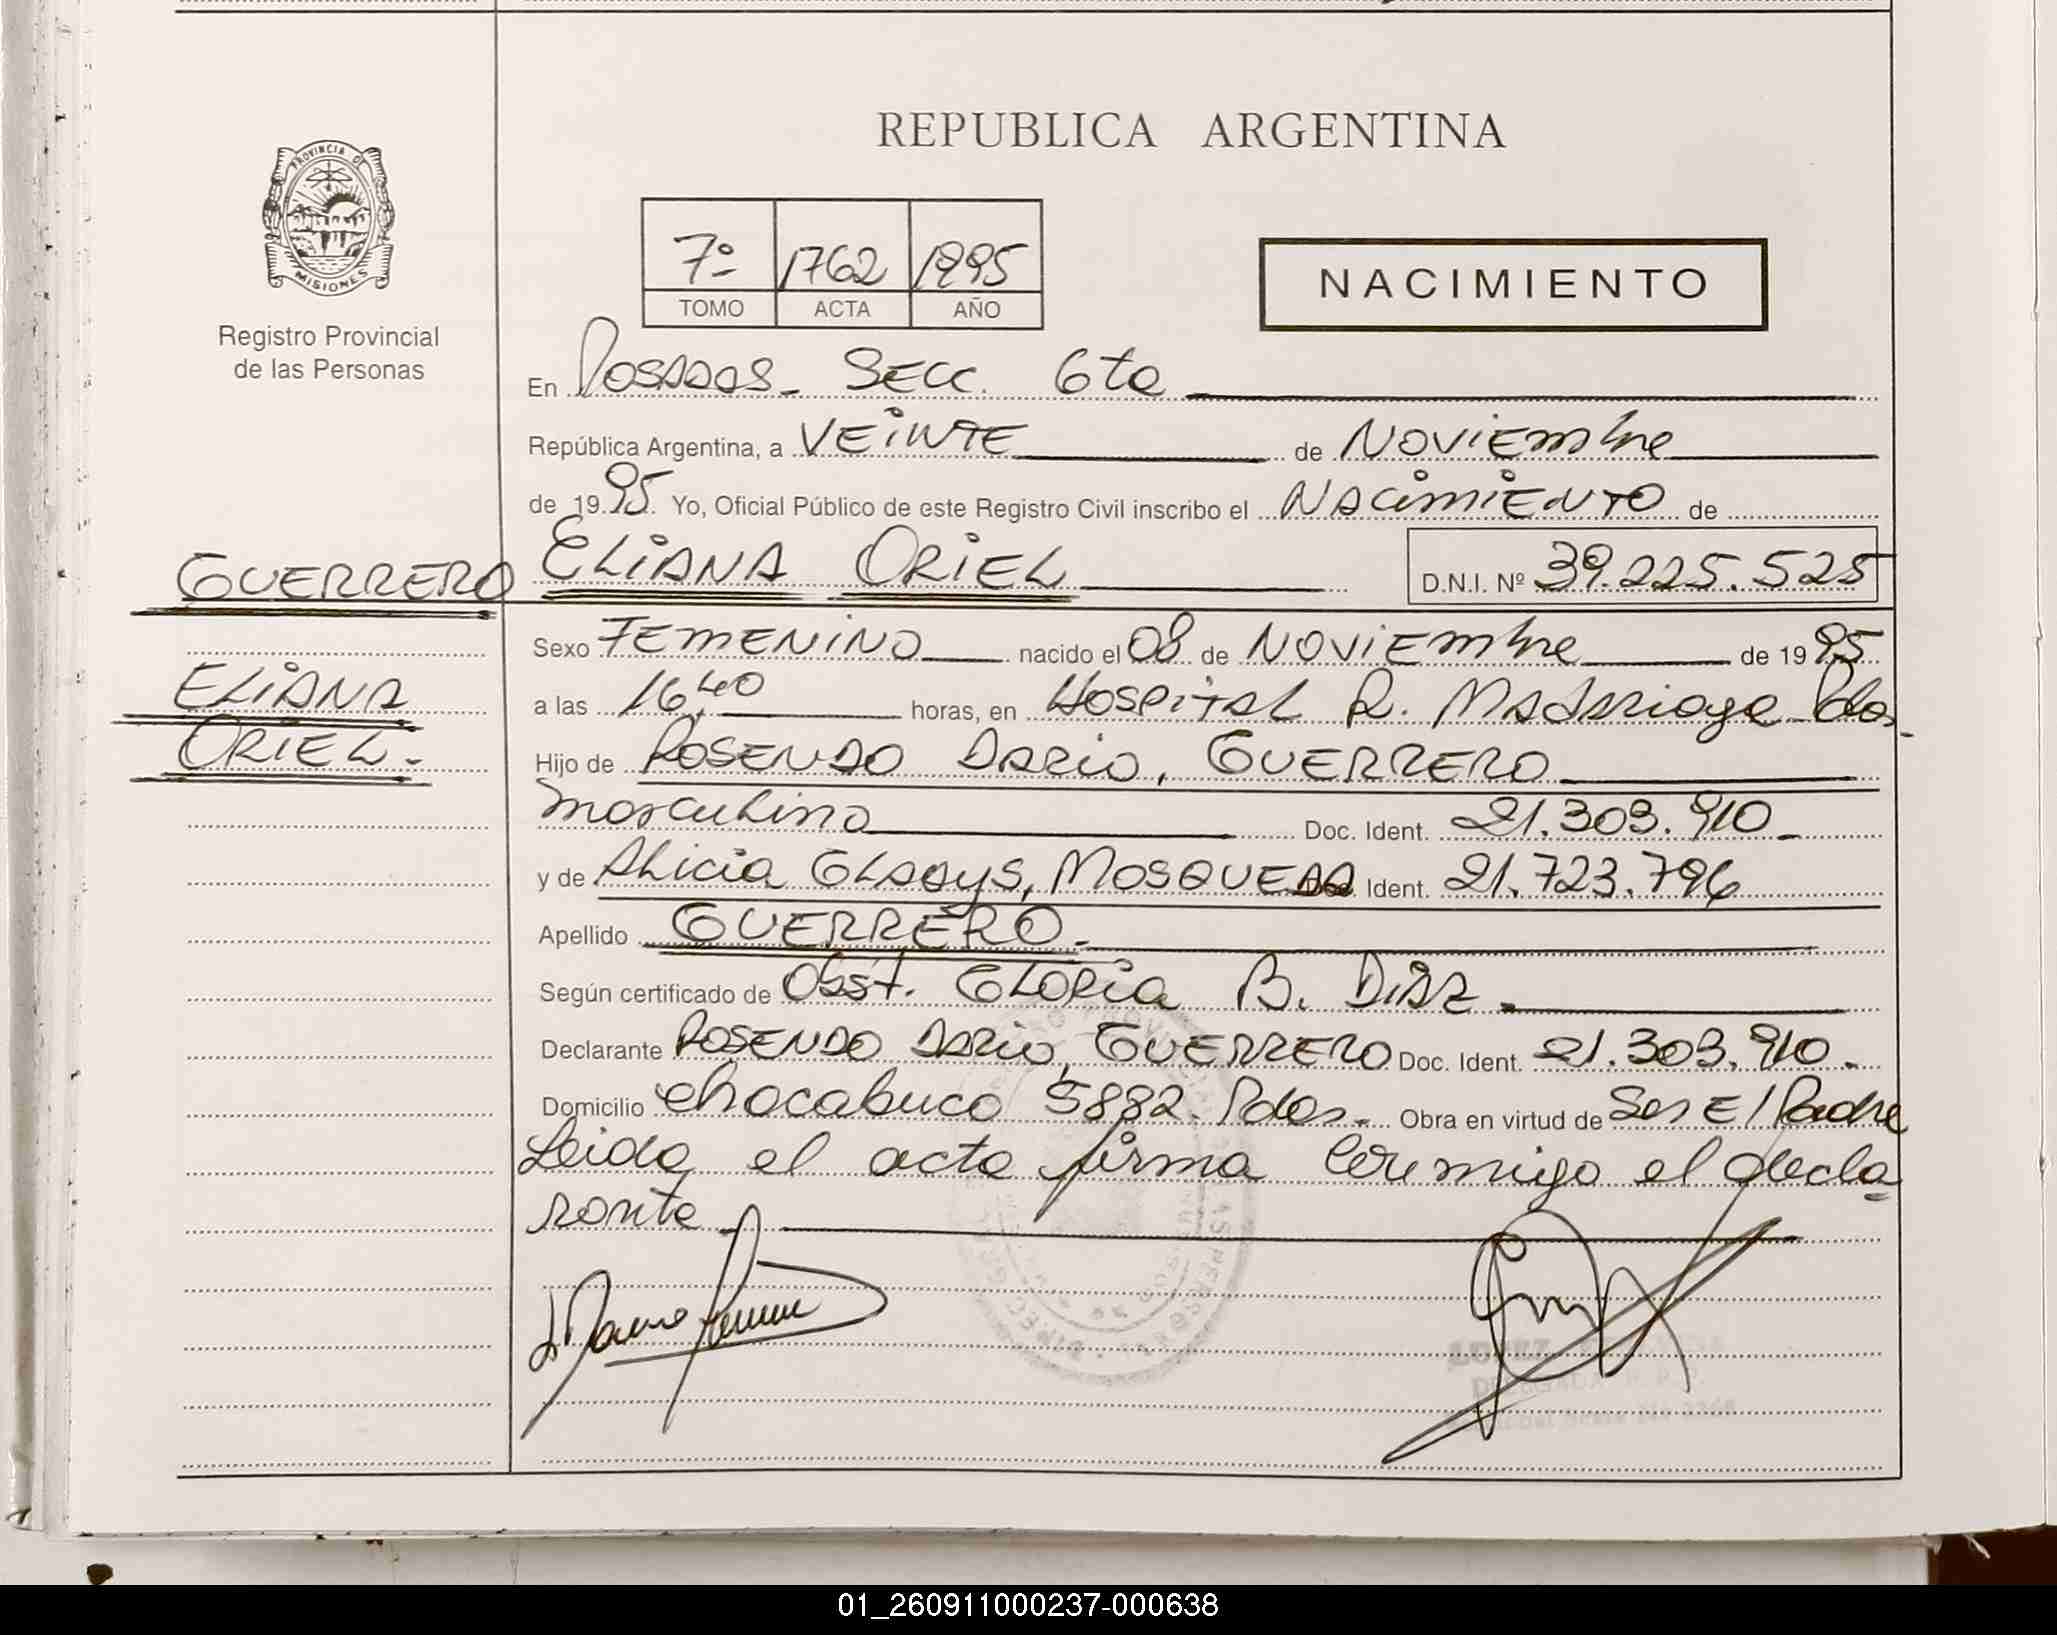 REPUBLICA ARGENTINA
PROVINCIA DE
MISIONES
Registro Provincial
de las Personas
7º 1762 1995
TOMO ACTA AÑO
NACIMIENTO
En Posadas - Secc. 6ta
República Argentina, a VEINTE de NOVIEMbre
de 1995 Yo, Oficial Público de este Registro Civil inscribo el NACIMIENTO de
GUERRERO ELIANA ORIEL D.N.I. Nº 39.225.525
Sexo FEMENINO nacido el 08 de NOVIEMbre de 1995
ELIANA
a las 16,40 horas, en Hospital R. Madariaga Pdas.
ORIEL.
Hijo de ROSENDO DARIO, GUERRERO
masculino Doc. Ident. 21.303.910
y de Alicia GLADYS, MOSQUEDA Doc. Ident. 21.723.796
Apellido GUERRERO.
Según certificado de Obst. GLORIA B. DIAZ.
Declarante ROSENDO DARIO, GUERRERO Doc. Ident. 21.303.910.
Domicilio Chacabuco 5882. Pdas. Obra en virtud de Ser El Padre
Leida el acta firma conmigo el decla
rante
LOPEZ
DELEGADA R. P. P.
01_260911000237-000638